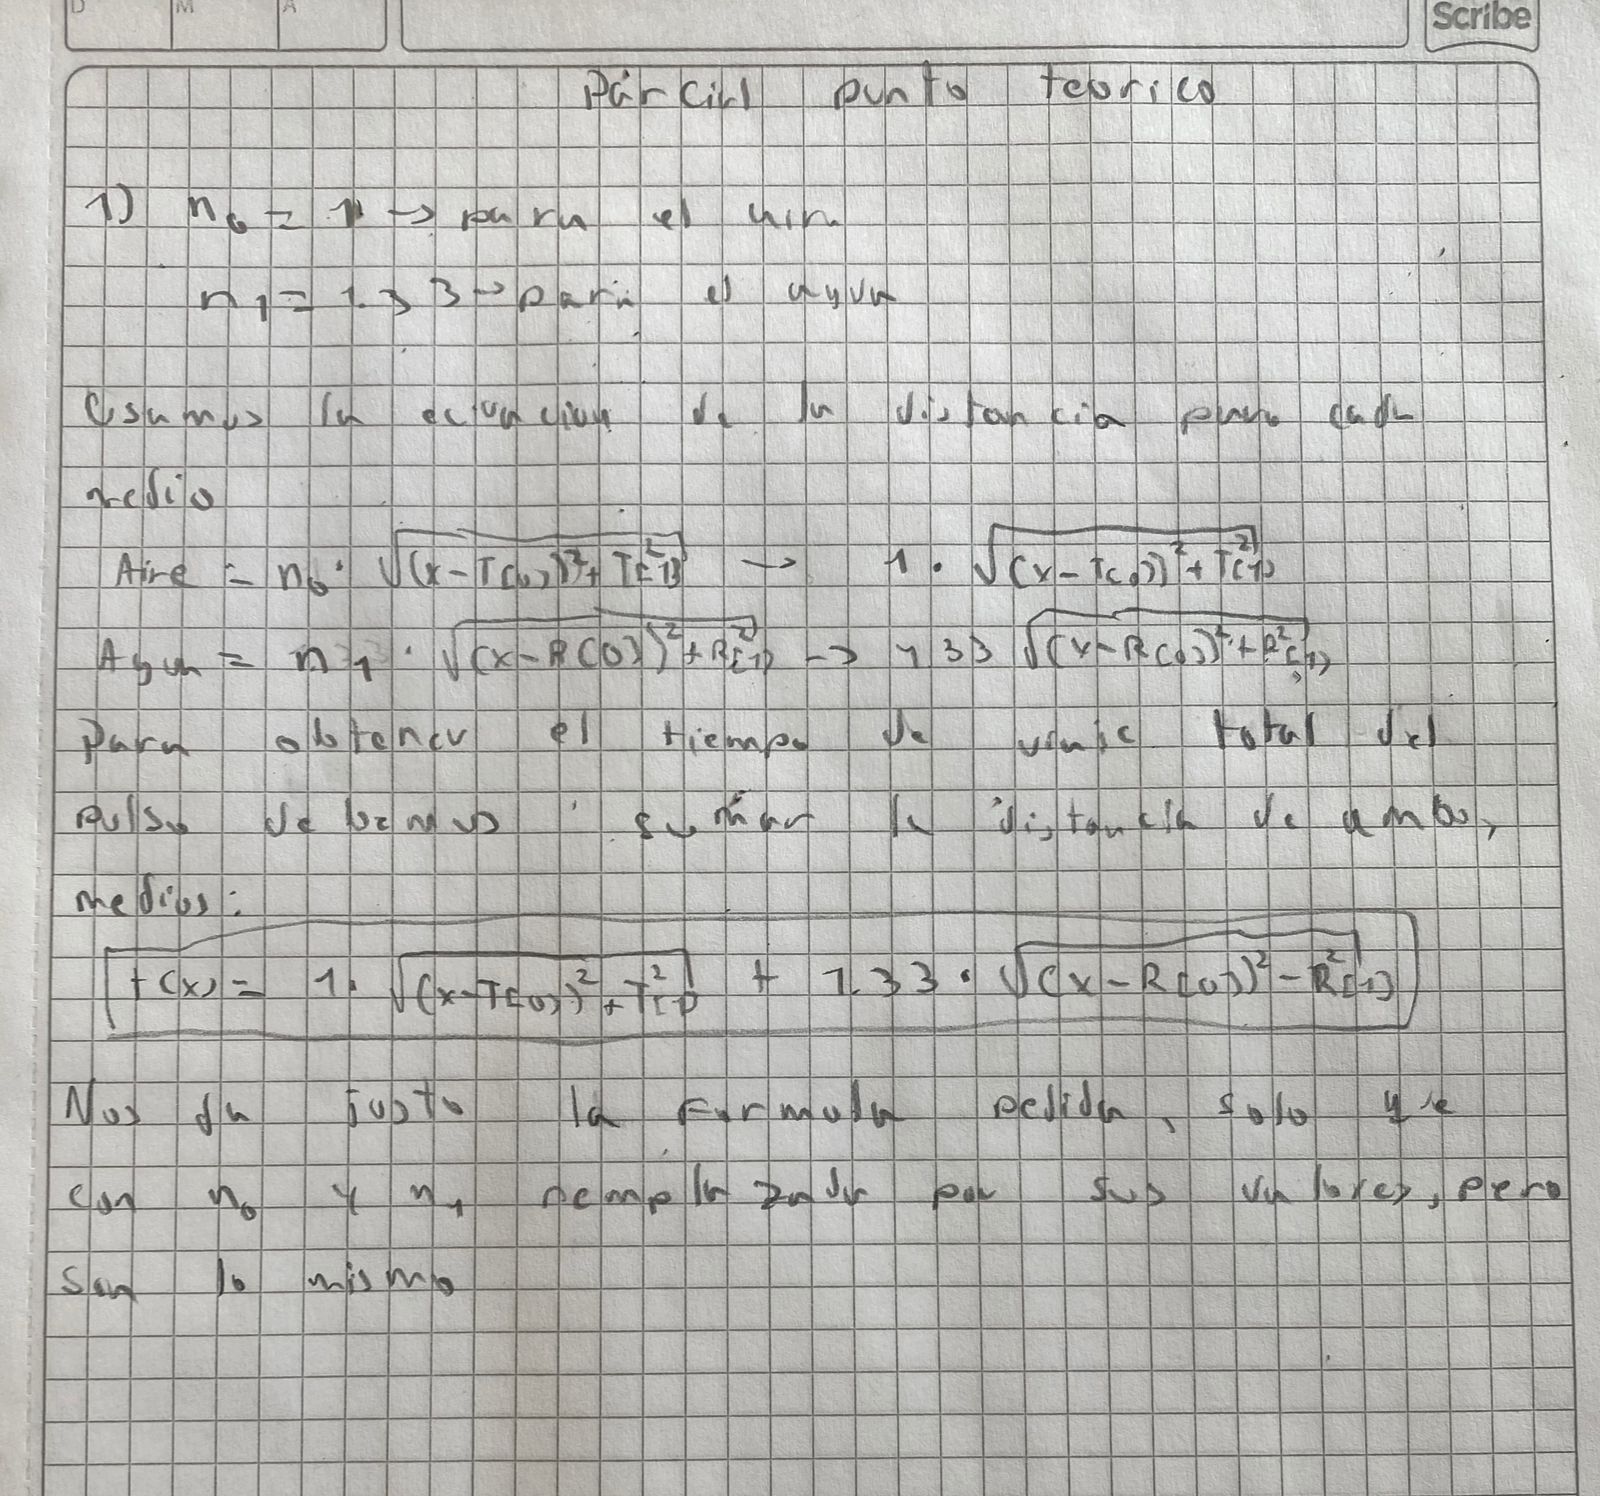 D M A Scribe
Parcial punto teorico
1) n₀ = 1 → para el aire
n₁ = 1.33 → para el agua
Usamos la ecuacion de la distancia para cada
medio
Aire = n₀ · √((x-T[0])² + T²[1]) → 1 · √((x-T[0])² + T²[1])
Agua = n₁ · √((x-R[0])² + R²[1]) → 1.33 √((x-R[0])² + R²[1])
Para obtener el tiempo de viaje total del
pulso debemos sumar la distancia de ambos
medios:
t(x) = 1 · √((x-T[0])² + T²[1]) + 1.33 · √((x-R[0])² - R²[1])
Nos da justo la formula pedida, solo que
con n₀ y n₁ remplazada por sus valores, pero
son lo mismo